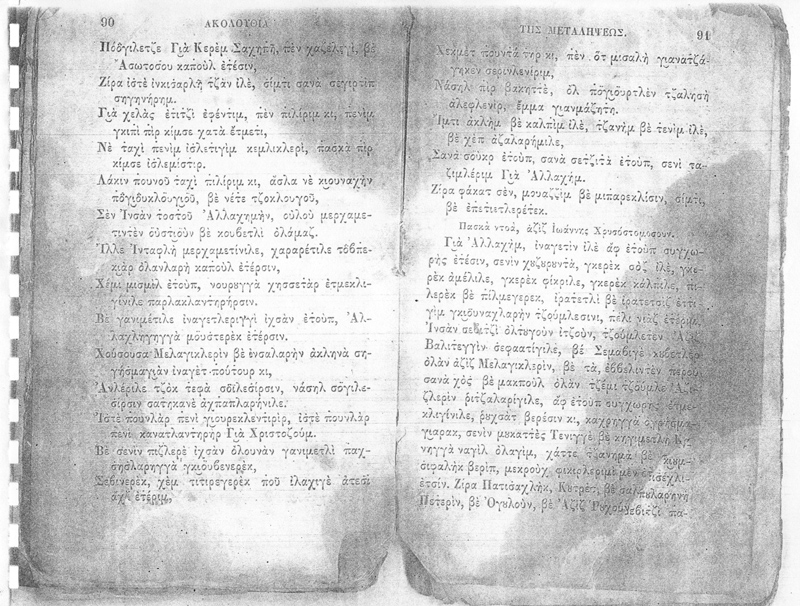 90 ΑΚΟΛΟΥΘΙΑ
Γιὰ Κερὲμ Σαχηπῆ, πὲν χαζέλεγὶ, βὲ
Ἀσωτοσου καποὺλ ἐτέσιν,
Ζίρα ἰστὲ ἰνκισαρλῆ τζὰν ἰλὲ, σίμτι σανὰ σεγιρτὶπ
σηγηνήρημ.
Γιὰ χελὰς ἐτιτζὶ ἐφέντιμ, πὲν πιλίριμ κι, πενὶμ
γκιπὶ πὶρ κίμσε χατὰ ἔτμετι,
Νὲ ταχὶ πενὶμ ἰσλετιγὶμ κεμλικλερὶ, πασκὰ πὶρ
κίμσε ἰσλεμίστιρ.
Λάκιν πουνοῦ ταχὶ πιλίριμ κι, ἄσλα νὲ κιουναχὴν
βὲ νέτε τζοκλουγοῦ,
Σὲν Ἰνσὰν τοστοῦ Ἀλλαχημὴν, οὐλοὺ μερχαμε-
τιντὲν οὐστιοὺν βὲ κουβετλὶ ὀλάμαζ.
Ἴλλε Ἰνταφλὴ μερχαμετίνιλε, χαραρέτιλε τὸβπε-
κιὰρ ὀλανλαρὴ καποὺλ ἐτέρσιν,
Χὲμ μισμὶλ ἐτοὺπ, νουρουγγὰ χησσετὰρ ἐτμεκλι-
γίνιλε παρλακλαντηρήρσιν.
Βὲ γανιμέτιλε ἰναγετλεριγγὶ ἰχσὰν ἐτοὺπ, Ἀλ-
λαχληγηγγὰ μουστερὲκ ἐτέρσιν.
Χουσουσα Μελαγικλερὶν βὲ ἐνσαλαρὴν ἀκληνὰ ση-
γήσμαγιὰν ἰναγὲτ πούτουρ κι,
Ἀνλέριλε τζὸκ τεφὰ σοϊλεσίρσιν, νάσηλ σογιλε-
σίρσιν σατηκανὲ ἀχπαπλαρήνιλε.
Ἰστὲ πουνλὰρ πενὶ γιουρεκλεντιρὶρ, ἰστὲ πουνλὰρ
πενὶ κανατλαντηρὴρ Γιὰ Χριστοζούμ.
Βὲ σενὶν πιζλερὲ ἰχσὰν ὀλουνὰν γανιμετλὶ παχ-
σησλαρηγγὰ γκιουβενερὲκ,
Σεβινερὲκ, χὲμ τιτιρεγερὲκ ποῦ ἰλαχιγὲ ἀτεσὶ
ἀχζ ἐτέριμ,
ΤΗΣ ΜΕΤΑΛΗΨΕΩΣ. 91
Χεκμὲτ πουντὰ τηρ κι, πὲν ὂτ μισαλὴ γιανατζά-
γηκεν σερινλενίριμ,
Νάσηλ πὶρ βακηττὲ, ὂλ τζαλησὴ
ἀλεφλενὶρ, ἔμμα γιανμάζητη.
Ἴμτι ἀκλὴμ βὲ καλπὶμ ἰλὲ, τζανὴμ βὲ τενὶμ ἰλὲ,
βὲ χὲπ ἀζαλαρήμιλε,
Σανὰ σουκρ ἐτοὺπ, σανὰ σετζιτὰ ἐτοὺπ, σενὶ τα-
ζιμλέριμ Γιὰ Ἀλλαχήμ.
Ζίρα φάκατ σὲν, μουαζζὶμ βὲ μιπαρεκλίσιν, σίμτι,
βὲ ἐπετιετλερέτεκ.
Πασκὰ ντοὰ, ἀζὶζ Ἰωάννης Χρυσόστομουσουν.
Γιὰ Ἀλλαχὴμ, ἰναγετὶν ἰλὲ ἂφ ἐτοὺπ συγχω-
ρὴς ἐτέσιν, σενὶν χυζυρουντὰ, γκερὲκ σὸζ ἰλὲ, γκε-
ρὲκ ἀμέλιλε, γκερὲκ φίκριλε, γκερὲκ κάλπιλε, πι-
λερὲκ βὲ πίλμεγερεκ, ἰρατετλὶ βὲ ἰρατετσὶζ ἐττι-
γὶμ γκιουναχλαρὴν τζουμλεσινι,
Ἰνσὰν ὀλτυγοὺν ἰτζοὺν, τζουμλετὲν
Βαλιτεγγὶν σεφαατίγιλε, βὲ Σεμαβιγὲ
ὀλὰν ἀζὶζ Μελαγικλερὶν, βὲ τὰ, ἐββελιντὲν
σανὰ χὸς βὲ μακποὺλ ὀλὰν τζεμὶ τζουμλὲ
ζλερὶν ριτζαλαρίγιλε, ἂφ ἐτοὺπ συγχωρὴς
κλιγίνιλε, ῥουχσὰτ βερέσιν κι,
γιαρὰκ, σενὶν μυκαττὲς Τενιγγὲ βὲ κηγιμετλὴ
νηγγὰ ναγὶλ ὀλαγὶμ,
σιφαλὴκ βερὶπ, μεκροὺχ
ἐτσίν. Ζίρα Πατισαχλὴκ, Κυτρὲτ, βὲ
Πετερὶν, βὲ Ὀγουλοὺν, βὲ Ἀζὶζ